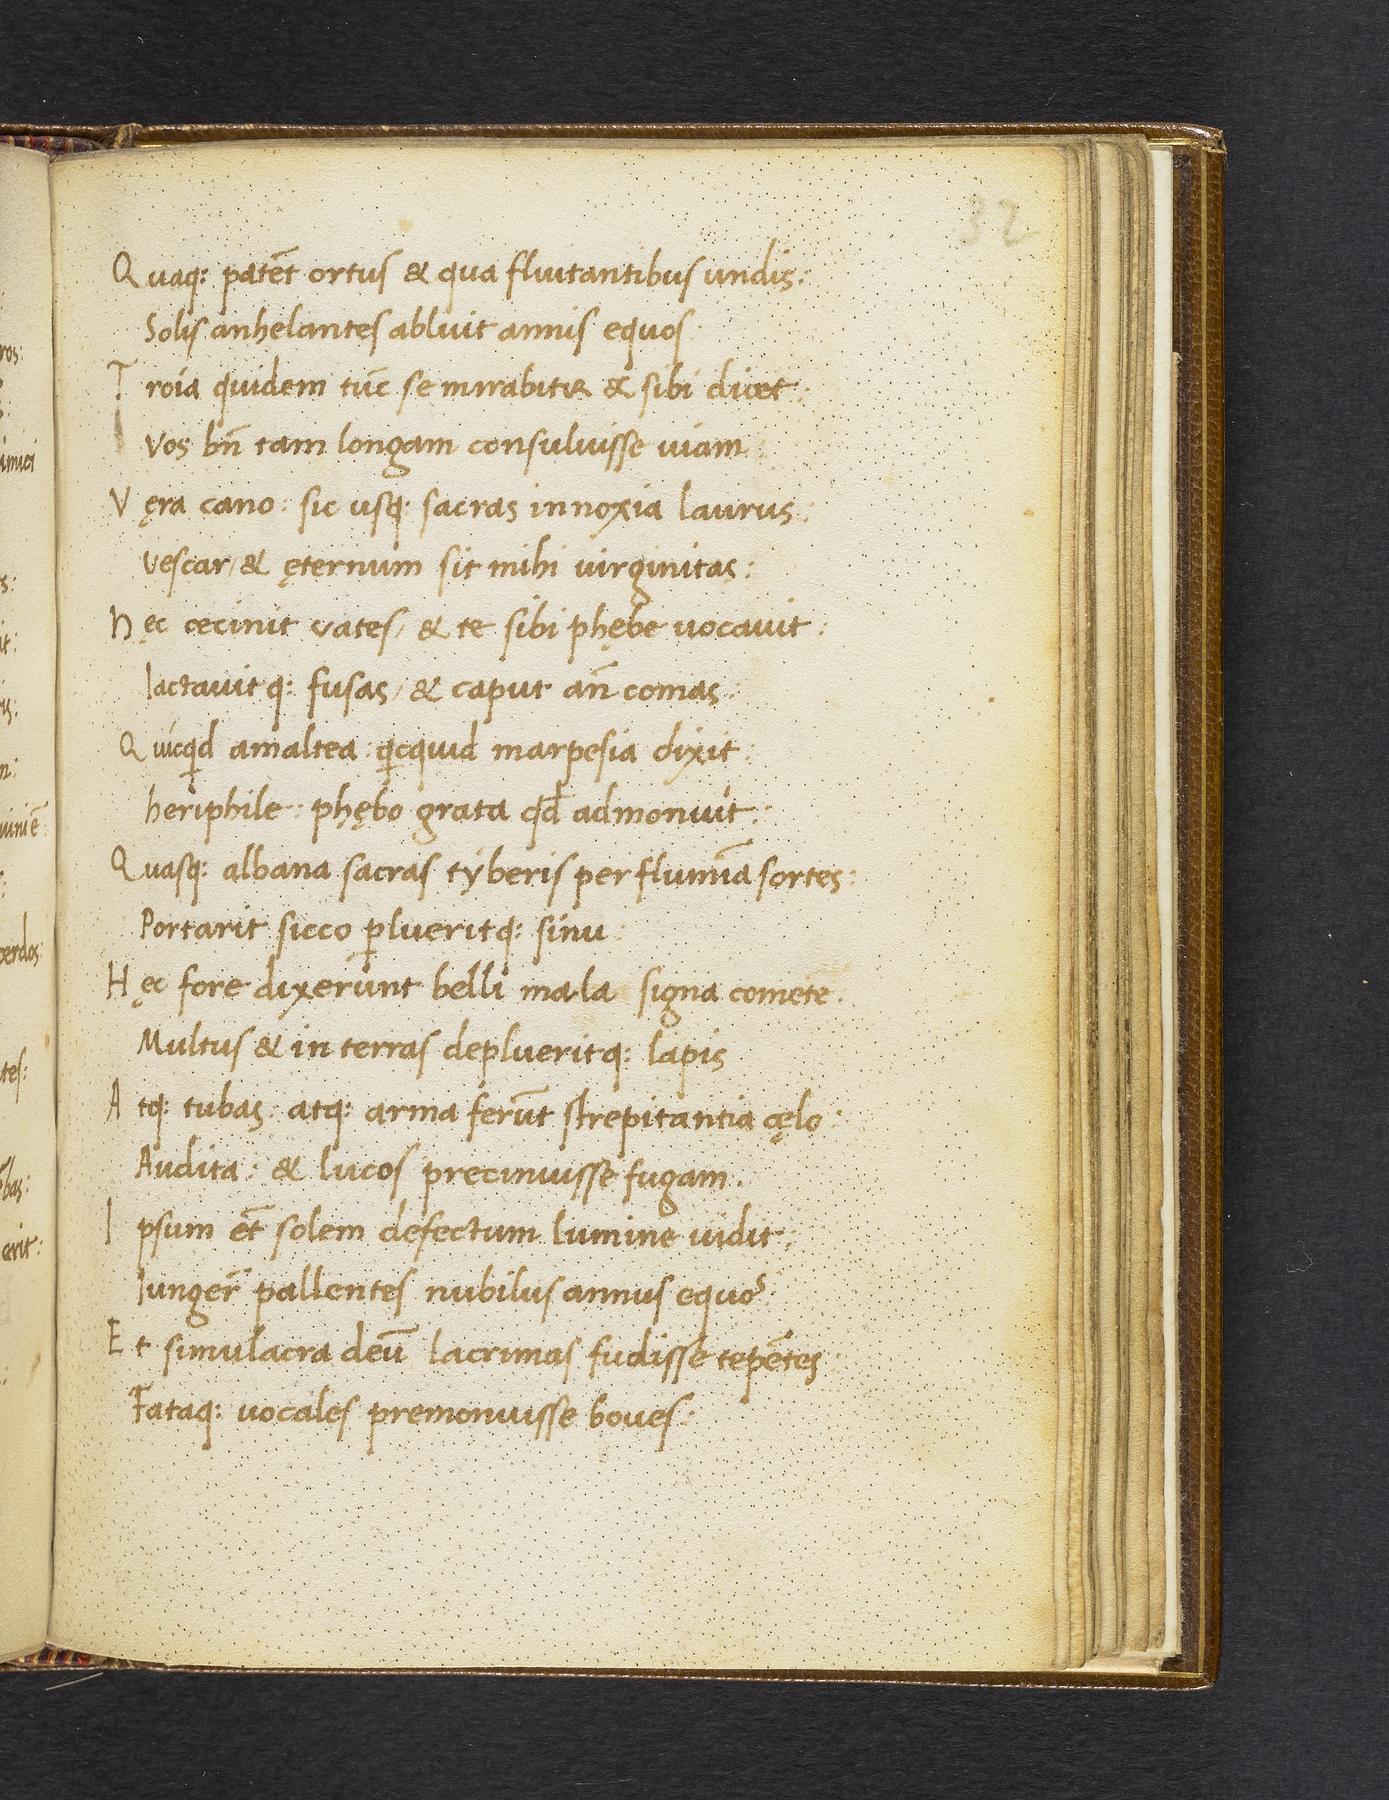 32
Quaq: patēt ortus & qua fluitantibus undis:
Solis anhelantes abluit amnis equos.
Troia quidem tūc se mirabitur & sibi dicet:
Vos bn̄ tam longam consuluisse uiam.
Vęra cano: sic usq: sacras innoxia laurus:
Vescar/ & ęternum sit mihi uirginitas:
hęc cecinit vates/ & te sibi phębe uocauit:
Iactauit q: fusas/ & caput an̄ comas:
Quicqd amaltea: qcquid marpesia dixit:
heriphile: phębo grata qđ admonuit:
Quasq: albana sacras tyberis per flumīa sortes:
Portarit sicco ꝑlueritq: sinu:
Hęc fore dixerunt belli mala signa comete.
Multus & in terras deplueritq: lapis
Atq: tubas: atq: arma ferūt strepitantia cęlo:
Audita: & lucos precinuisse fugam.
Ipsum et̄ solem defectum lumine uidit:
Iunger̄ pallentes nubilus annus equos:
Et simulacra deū lacrimas fudisse tepētes
Fataq: uocales premonuisse boues: